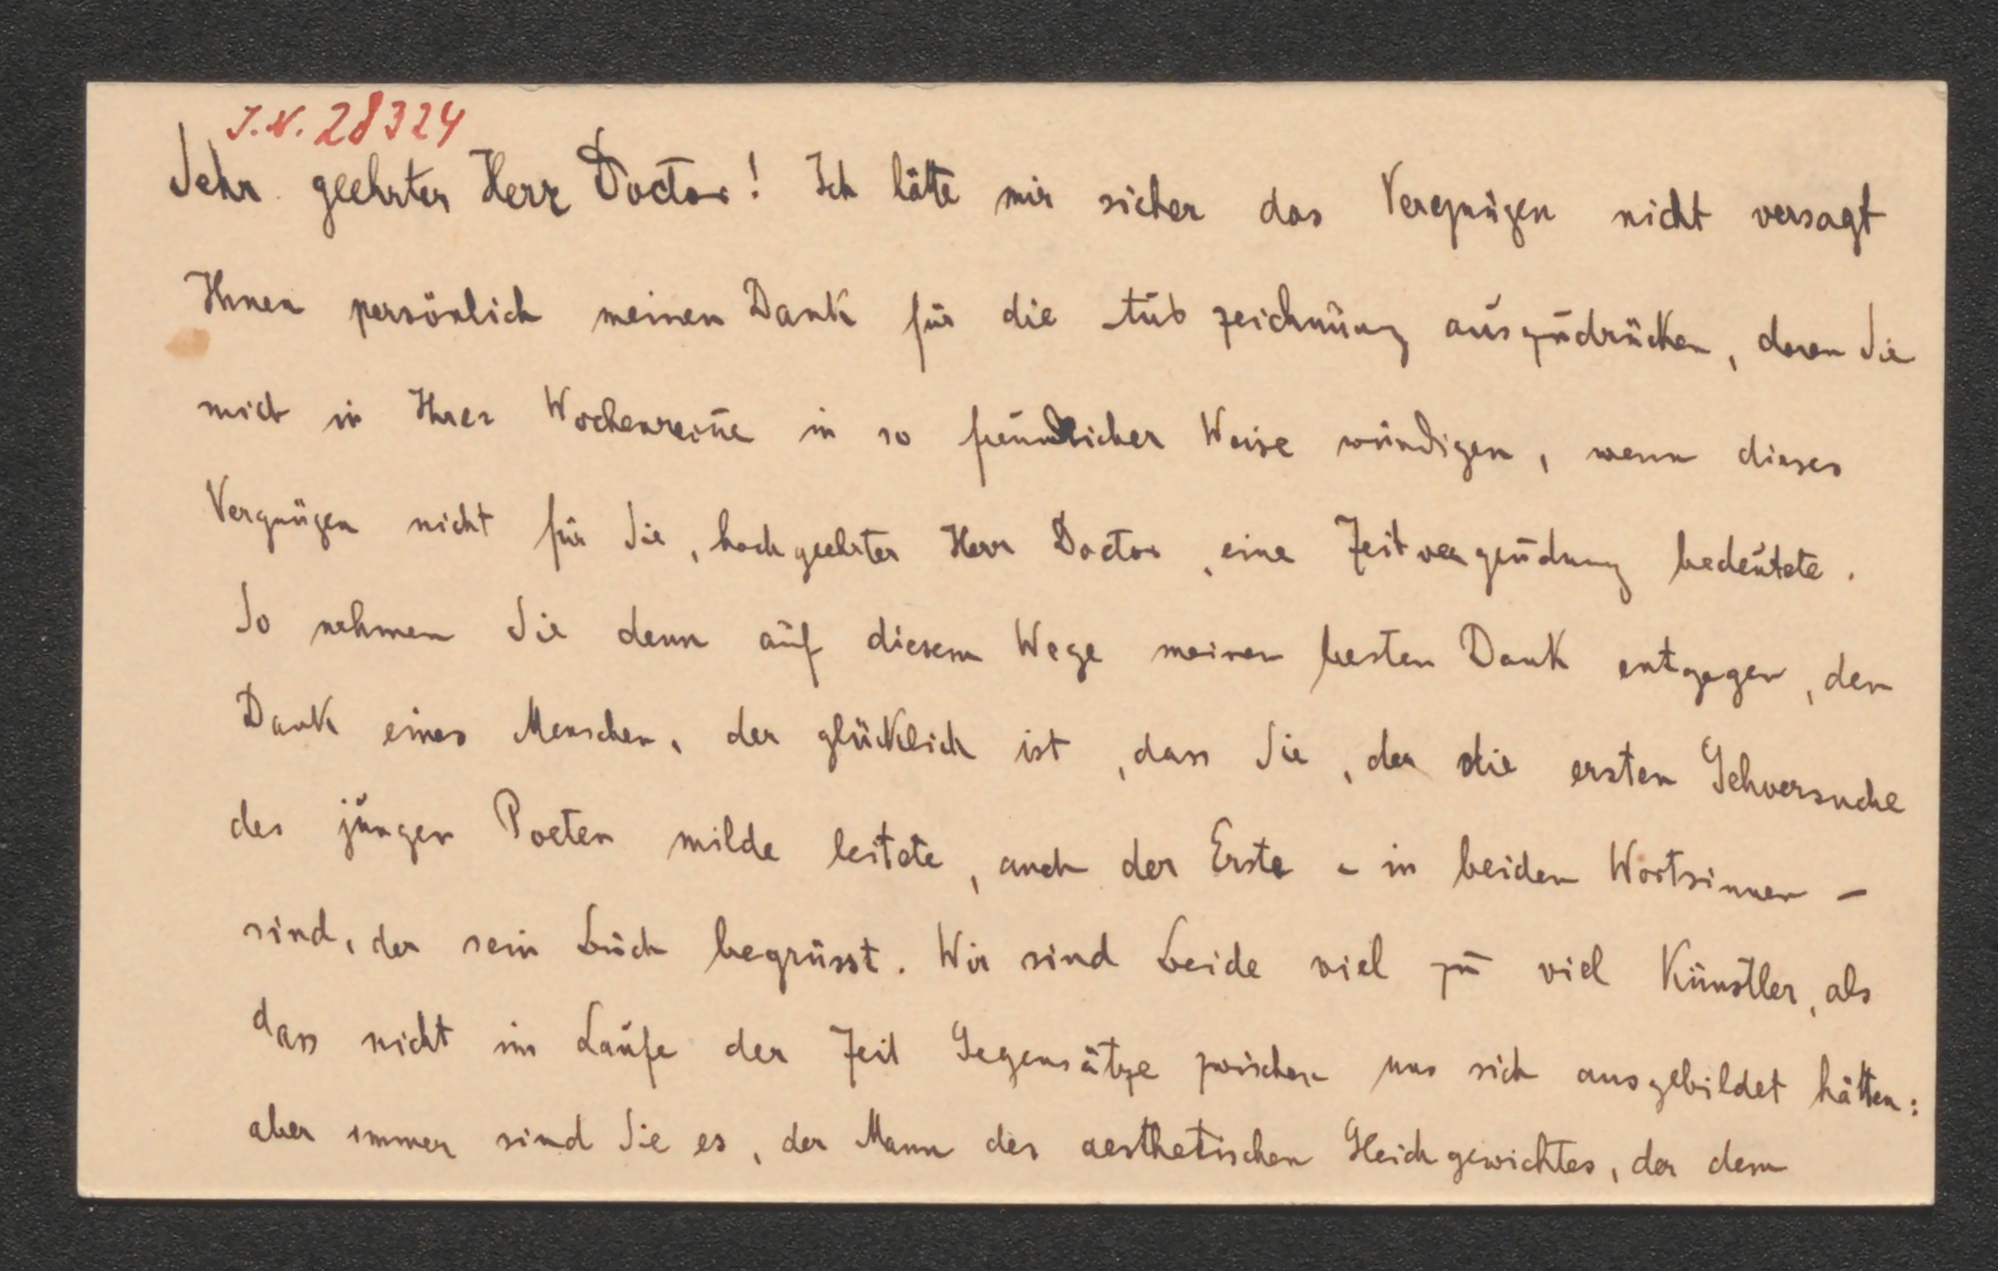 J.N. 28324
Sehr geehrter Herr Doctor! Ich hätte mir sicher das Vergnügen nicht versagt
Ihnen persönlich meinen Dank für die zeichnung auszudrücken, deren Sie
mich in Ihrer Wochenrevue in so freundlicher Weise würdigen, wenn dieses
Vergnügen nicht für Sie, hochgeehrter Herr Doctor, eine Zeitvergeudung bedeutete.
So nehmen Sie denn auf diesem Wege meinen besten Dank entgegen, den
Dank eines Menschen, der glücklich ist, dass Sie, der die ersten Gehversuche
des jungen Poeten milde leitete, auch der Erste - in beiden Wortsinnen -
sind, der sein Buch begrüsst. Wir sind beide viel zu viel Künstler, als
dass nicht im Laufe der Zeit Gegensätze zwischen uns sich ausgebildet hätten:
aber immer sind Sie es, der Mann des aesthetischen Gleichgewichtes, der dem